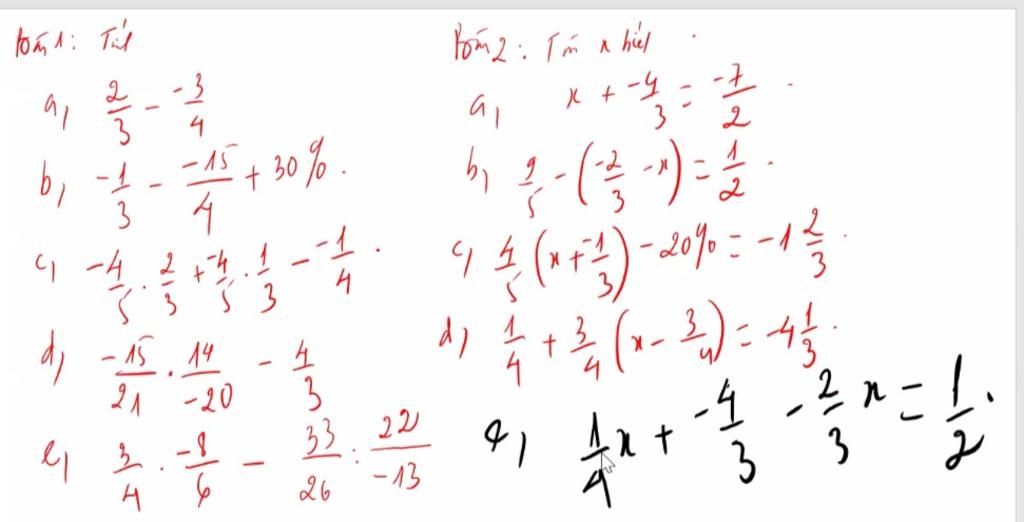 Bài 1: Tính
a, 2/3 - -3/4
b, -1/3 - -15/4 + 30%.
c, -4/5 . 2/3 + -4/5 . 1/3 - -1/4.
d, -15/21 . 14/-20 - 4/3
e, 3/4 . -8/6 - 33/26 : 22/-13
Bài 2: Tìm x biết.
a, x + -4/3 = -7/2.
b, 9/5 - (-2/3 - x) = 1/2.
c, 4/5 (x + -1/3) - 20% = -1 2/3.
d, 1/4 + 3/4 (x - 3/4) = -4 1/3.
e, 1/4 x + -4/3 - 2/3 x = 1/2.